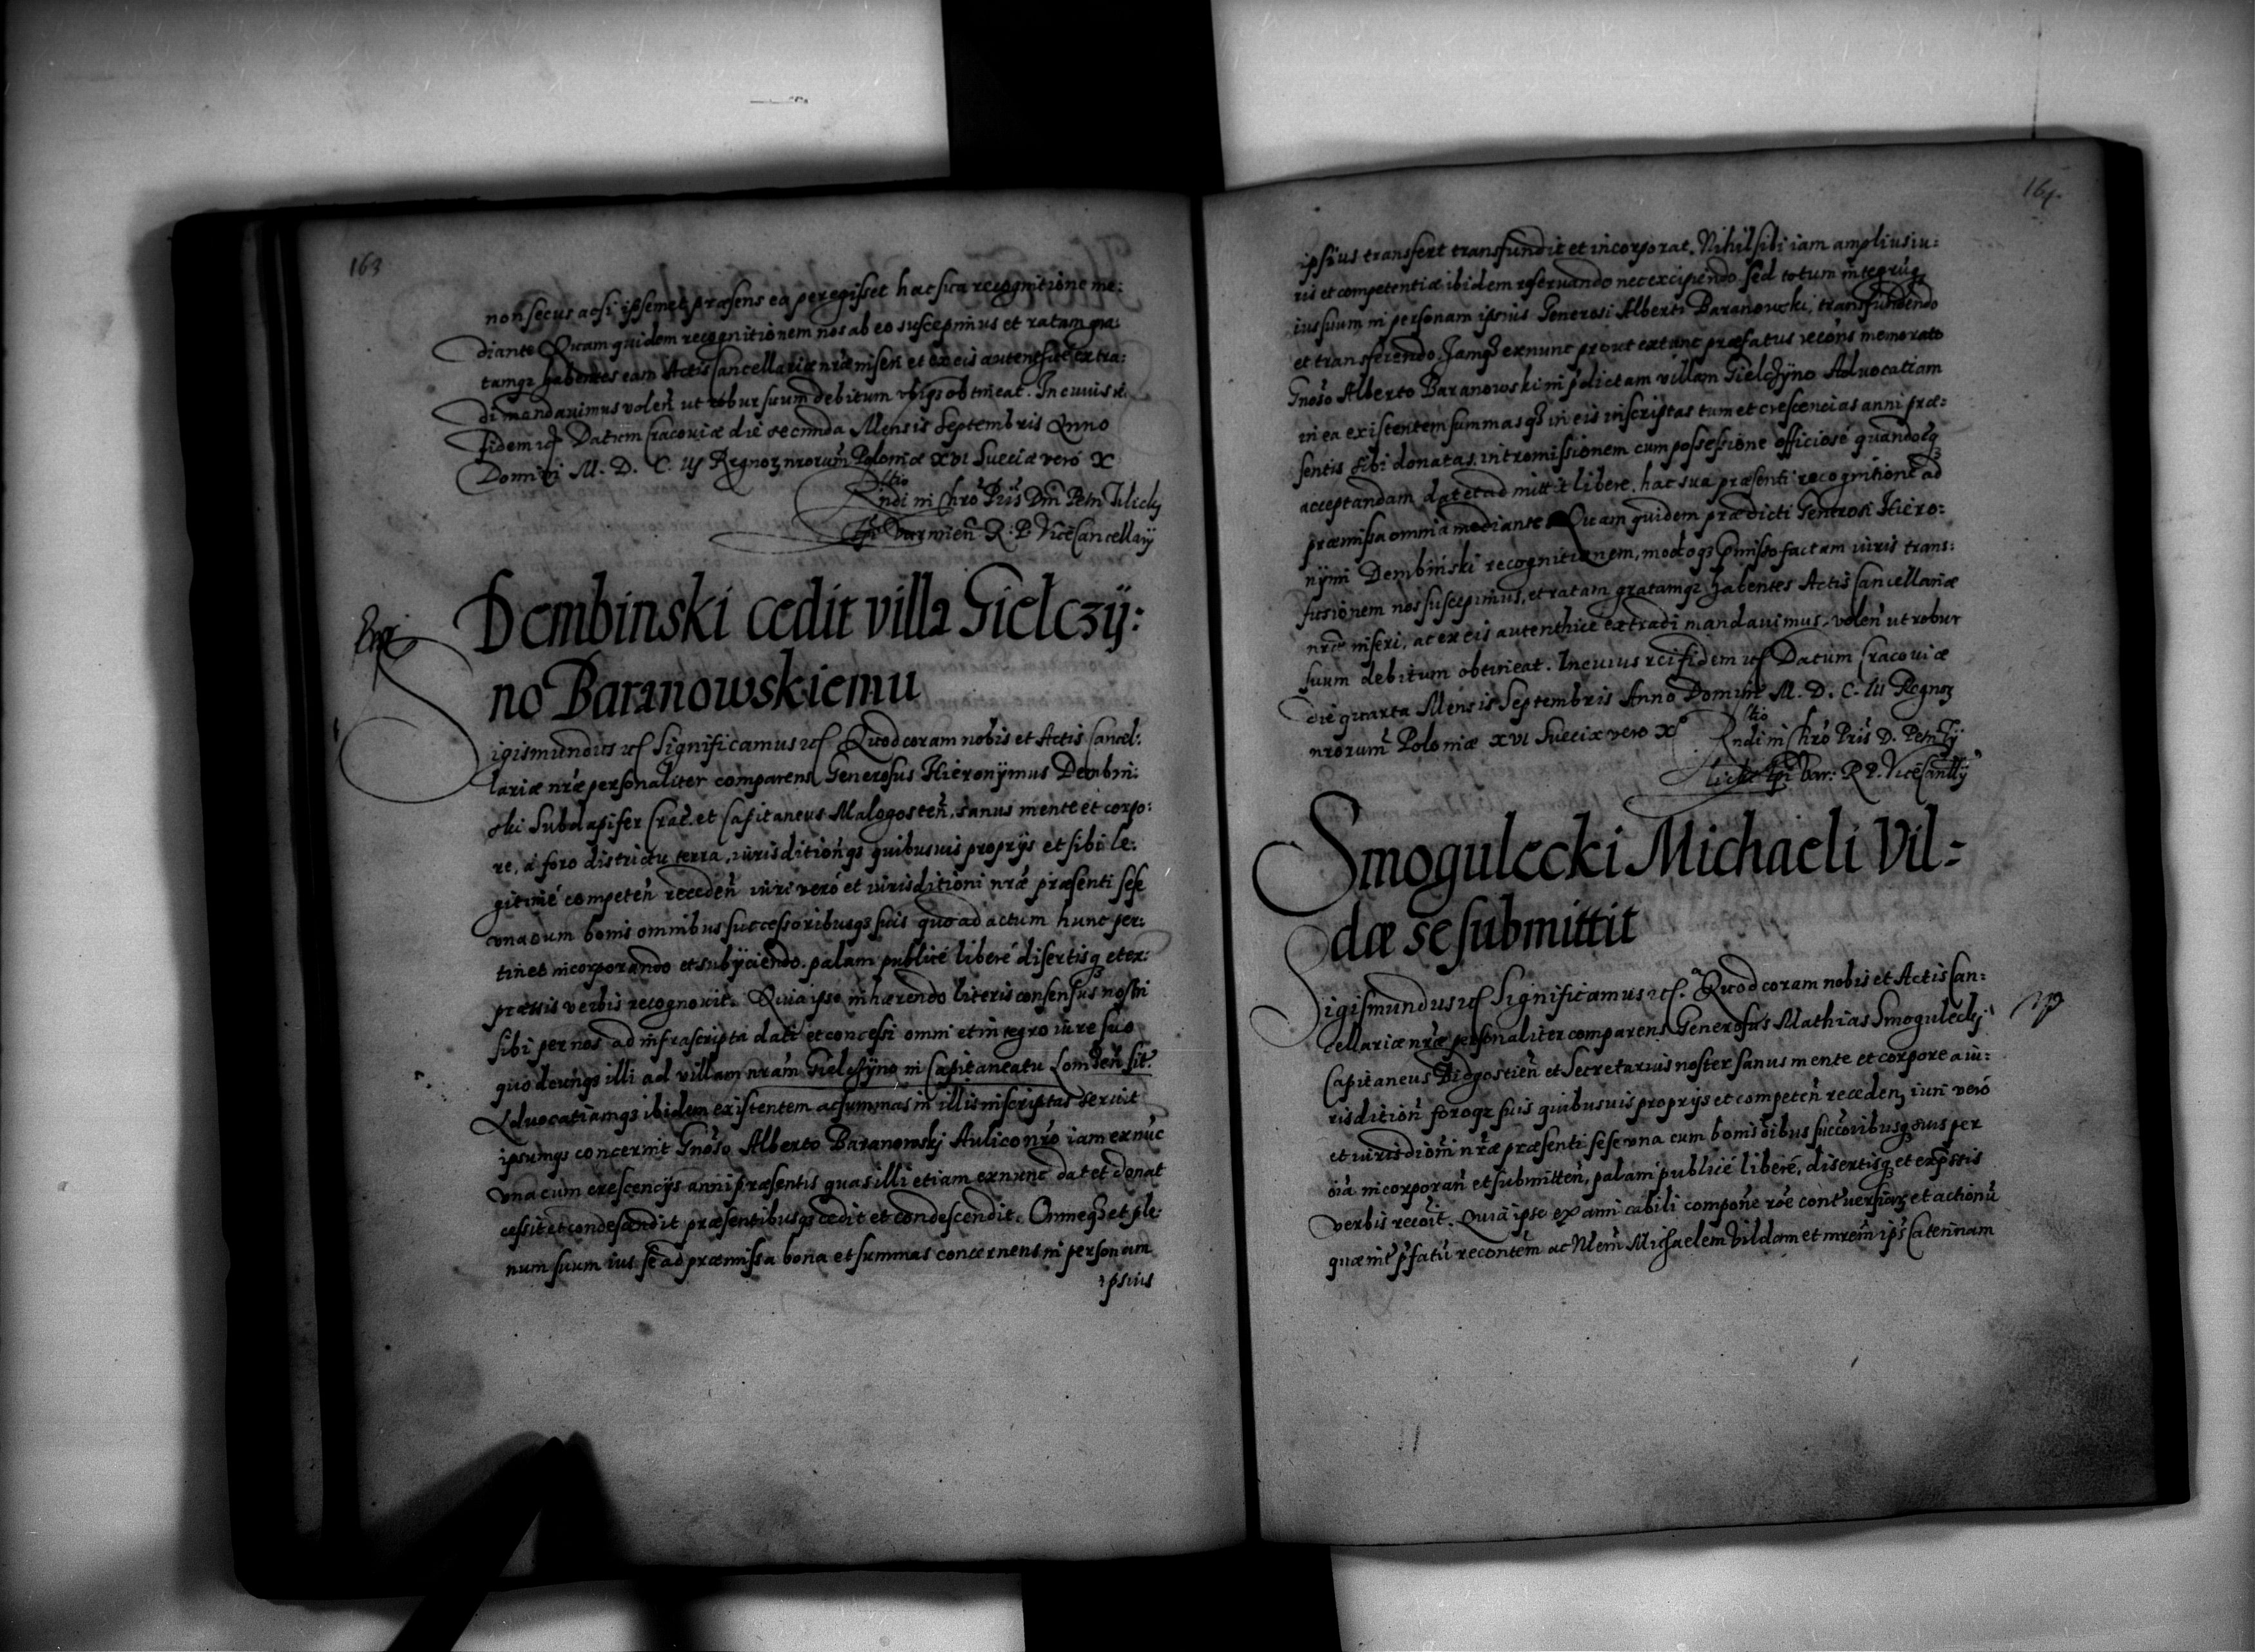 163
non secus acsi ipsemet præsens ea peregisset hac sua recognitione me:
diante Quam quidem recognitionem nos ab eo suscepimus et ratam gra:
tamqz habentes eam Actis Cancellariæ nræ inseri et ex eis autentice extra:
di mandavimus volen̄ ut robur suum debitum ubiqz obtineat. In cuius rei
fidem etc Datum Cracoviæ die secunda Mensis Septembris Anno
Domini M. D. C. III Regnoz nrorum̄ Poloniæ XVI Sueciæ vero X
Rndi in Chro Pris Dni Petri Tilicky
Epi Varmien̄ R. P. Vicecancellarij
Dembinski cedit villa Gielczÿ:
no Baranowskiemu
Sigismundus etc Significamus etc Quod coram nobis et Actis Cancel:
lariæ nræ personaliter comparens Generosus Hieronÿmus Dembin:
ski Subdapifer Crac. et Capitaneus Malogosten̄. sanus mente et corpo:
re, à foro districtu terra, iurisdition̄qz quibusuis proprijs et sibi le:
gitimé competen̄ receden̄ iuri veró et iurisditioni nræ præsenti sese
una cum bonis omnibus successoribusqz suis quo ad actum hunc per:
tinet incorporando et subÿciendo. palam publicé liberé disertisqz et ex:
præssis verbis recognovit. Quia ipse inhærendo literis consensus nostri
sibi per nos ad infrascripta dati et concessi omni et integro iure suo
quodcunqz illi ad villam nram Gielczÿno in Capitaneatu Lomzen̄ sit.
Advocatiamqz ibidem existentem ac summas in illis inscriptas servit
ipsumqz concernit Gnoso Alberto Baranowskj Aulico nro iam exnūc
una cum crescencijs anni præsentis quas illi etiam exnunc dat et donat
cessit et condescendit præsentibusqz cedit et condescendit. Omneqz et ple:
num suum ius se ad præmissa bona et summas concernens in personam
ipsius
164
ipsius transfert transfundit et incorporat. Nihil sibi iam amplius iu:
ris et competentiæ ibidem reservando nec excipiendo. sed totum integrūqz
ius suum in personam ipsius Generosi Alberti Baranowski, transfundendo
et transferendo. Jamqz exnunc prout extunc præfatus recōns memorato
Gnoso Alberto Baranowski in pdictam villam Gielczÿno Advocatiam
in ea existentem summasqz in eis inscriptas tum et crescencias anni præ:
sentis sibi donatas intromissionem cum possessione officiosé quandocqz
acceptandam dat et admittit libere. hac sua præsenti recognitione ad
præmissa omnia mediante Quam quidem prædicti Generosi Hiero:
nÿmi Dembinski recognitionem, modoqz pmisso factam iuris trans:
fusionem nos suscepimus, et ratam gratamqz habentes Actis Cancellariæ
nræ inseri, ac ex eis autenthice extradi mandavimus. volen̄ ut robur
suum debitum obtineat. In cuius rei fidem etc Datum Cracoviæ
die quarta Mensis Septembris Anno Domini M. D. C. III Regnoz
nrorum̄ Poloniæ XVI Sueciæ vero Xº Rndi in Chro Pris D. Petri Ty
licki Epi Var: R P. Vicecancllÿ
Smogulecki Michaeli Vil=
dæ se submittit
Sigismundus etc Significamus etc. Quod coram nobis et Actis Can:
cellariæ nræ personaliter comparens Generosus Mathias Smoguleckj
Capitaneus Bidgostien̄ et Secretarius noster sanus mente et corpore a iu:
risdition̄ foroqz suis quibusuis proprijs et competen̄ receden, iuri veró
et iurisdioni nræ præsenti sese una cum bonis oibus succoribusqz suis per
oia incorporan̄ et submitten̄, palam publicé liberé, disertisqz et expssis
verbis recoit. Quia ipse ex amicabili compone rōe cont'versiarz et actionū
quæ int' pfatū recontem ac Nem̄ Michaelem Vildam et mrem̄ ips Catérinam